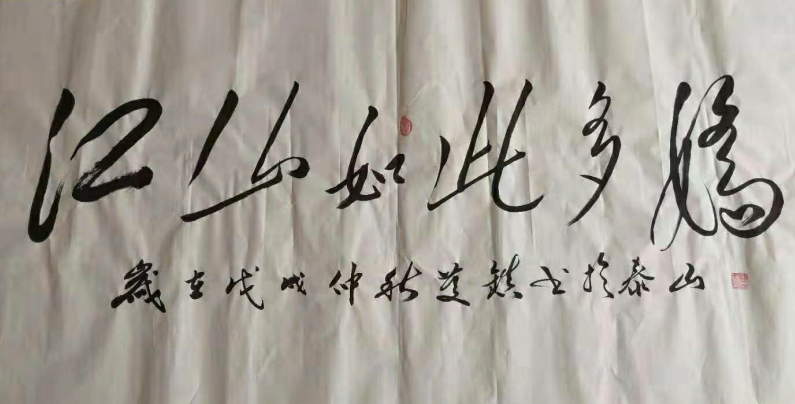 江山如此多娇
岁在戊戌仲秋 镇书于泰山